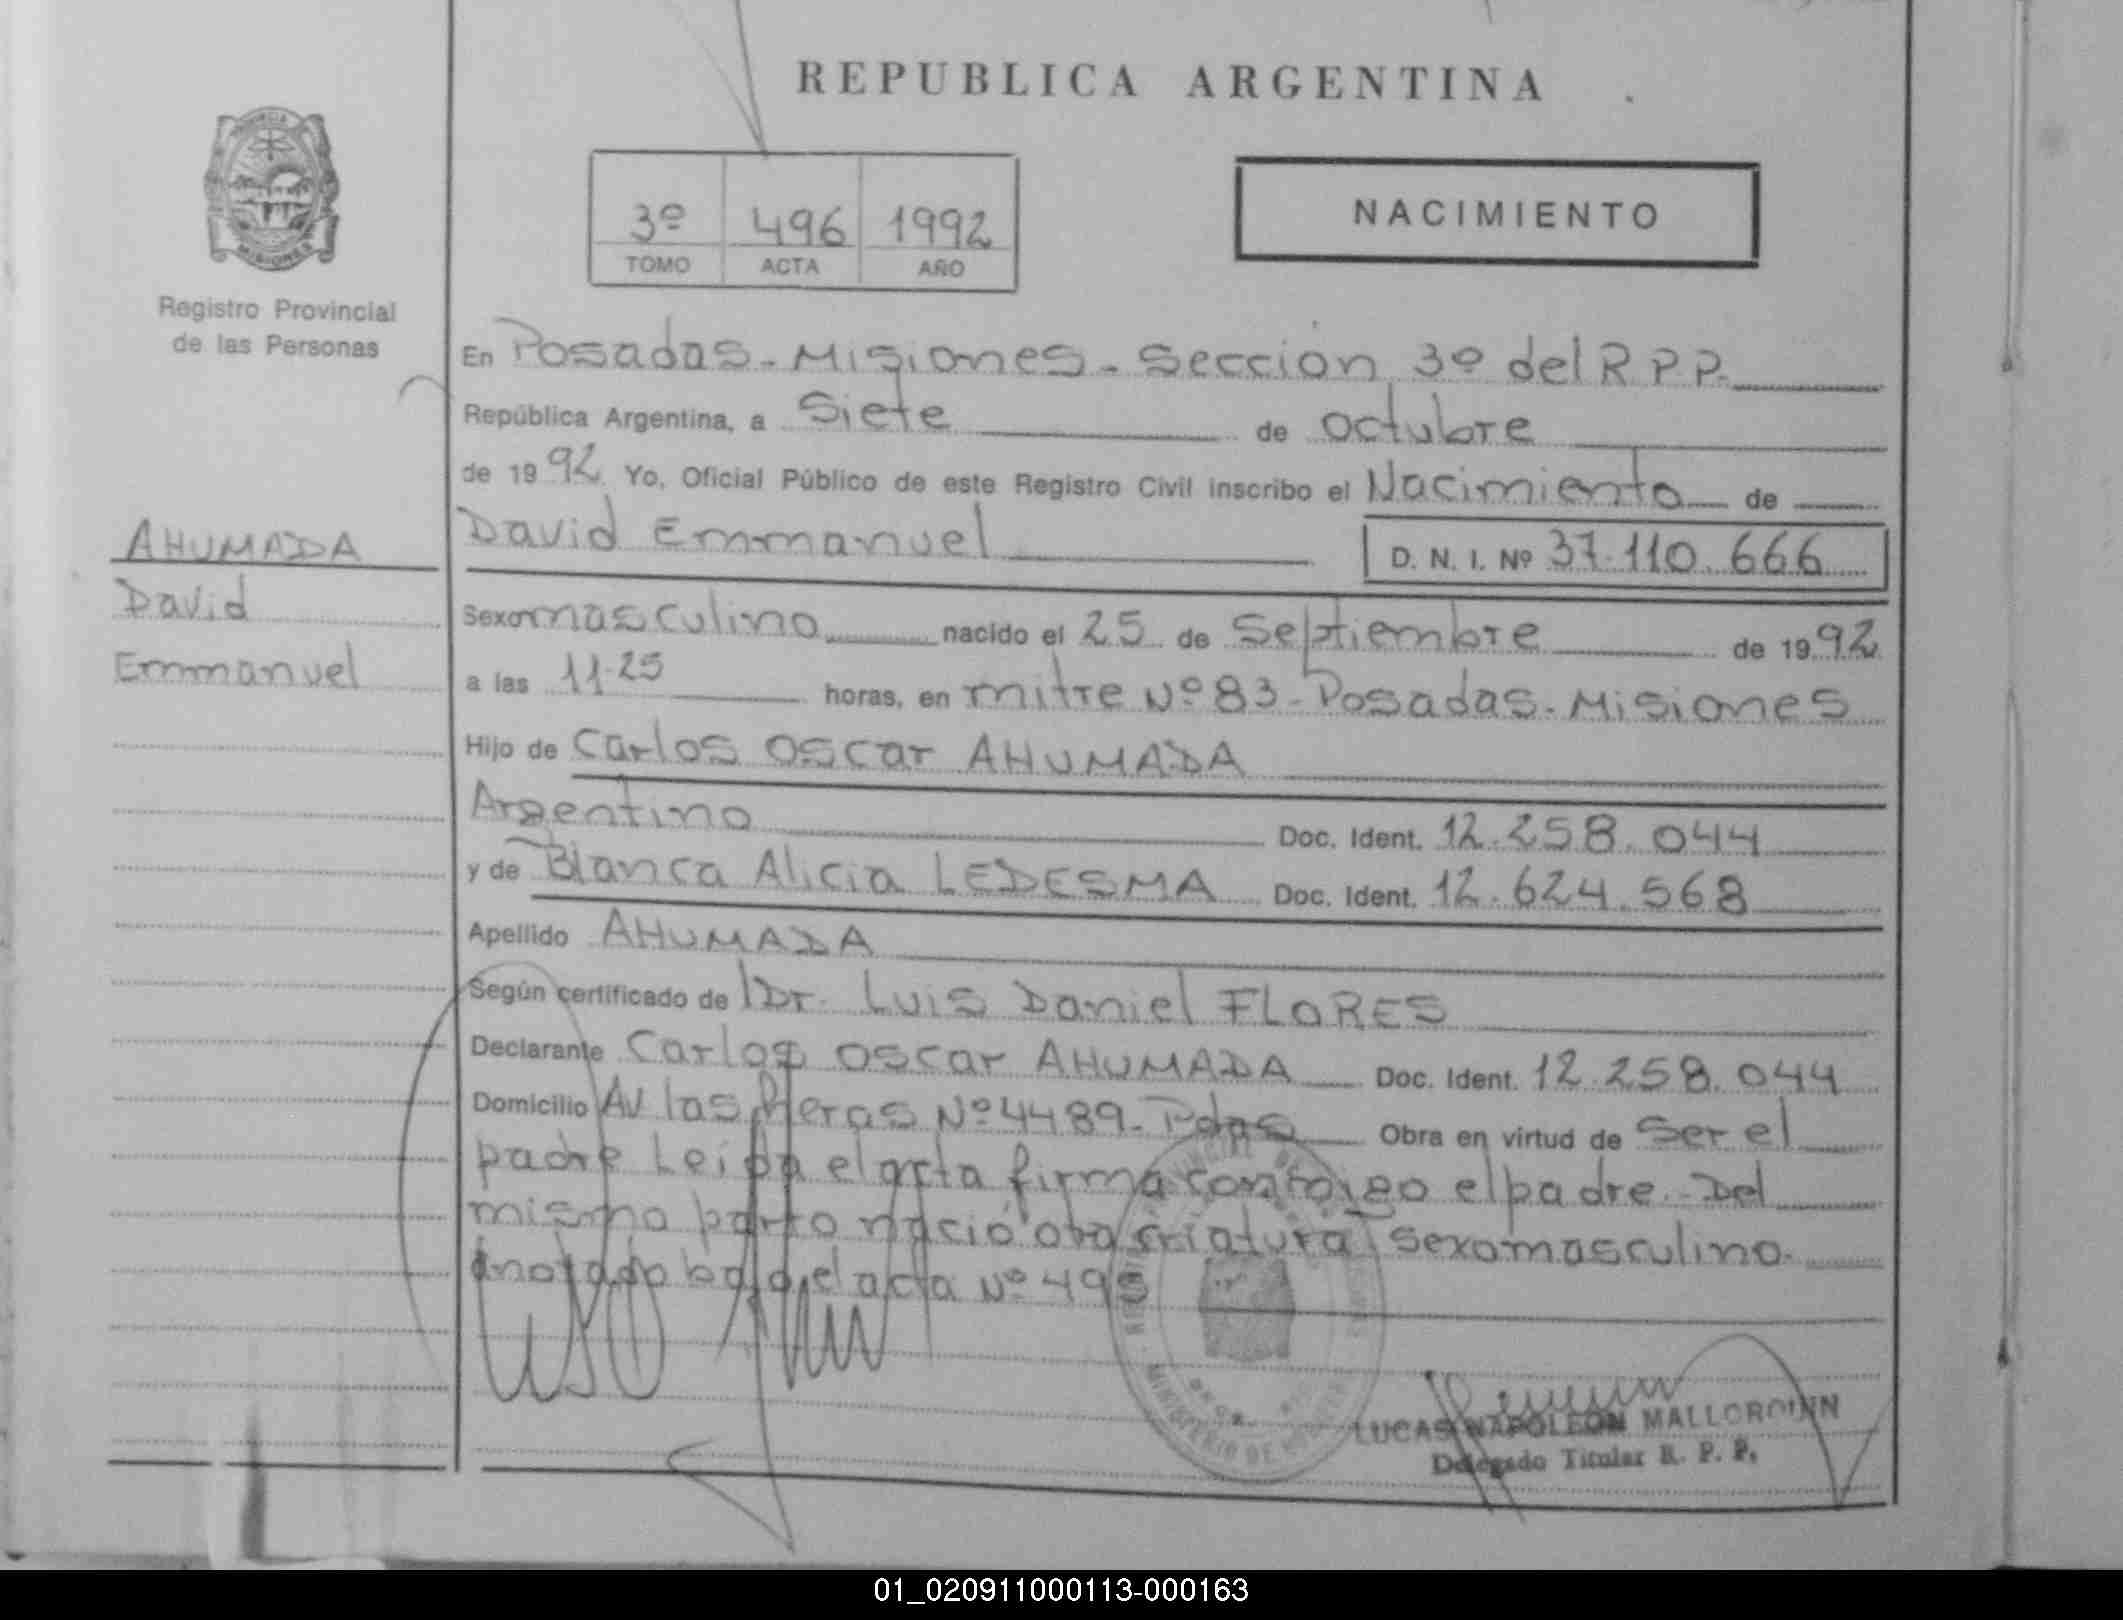 REPUBLICA ARGENTINA
PROVINCIA
MISIONES
Registro Provincial
de las Personas
3º 496 1992
TOMO ACTA AÑO
NACIMIENTO
En Posadas - Misiones - Sección 3º del R P P.
República Argentina, a Siete de octubre
de 1992 Yo, Oficial Público de este Registro Civil inscribo el Nacimiento de
David Emmanuel D. N. I. Nº 37.110.666
AHUMADA
David
Emmanuel
Sexo masculino nacido el 25 de Septiembre de 1992
a las 11.25 horas, en mitre Nº 83 - Posadas - Misiones
Hijo de Carlos Oscar AHUMADA
Argentino Doc. Ident. 12.258.044
y de Blanca Alicia LEDESMA Doc. Ident. 12.624.568
Apellido AHUMADA
Según certificado de Dr. Luis Daniel FLORES
Declarante Carlos Oscar AHUMADA Doc. Ident. 12.258.044
Domicilio Av las Heras Nº 4489 - Pdas Obra en virtud de Ser el
padre Leída el acta firma conmigo el padre - Del
mismo parto nació otra criatura sexo masculino.
Anotado bajo el acta Nº 495
MINISTERIO DE
LUCAS NAPOLEON MALLORQUIN
Delegado Titular R. P. P.
01_020911000113-000163